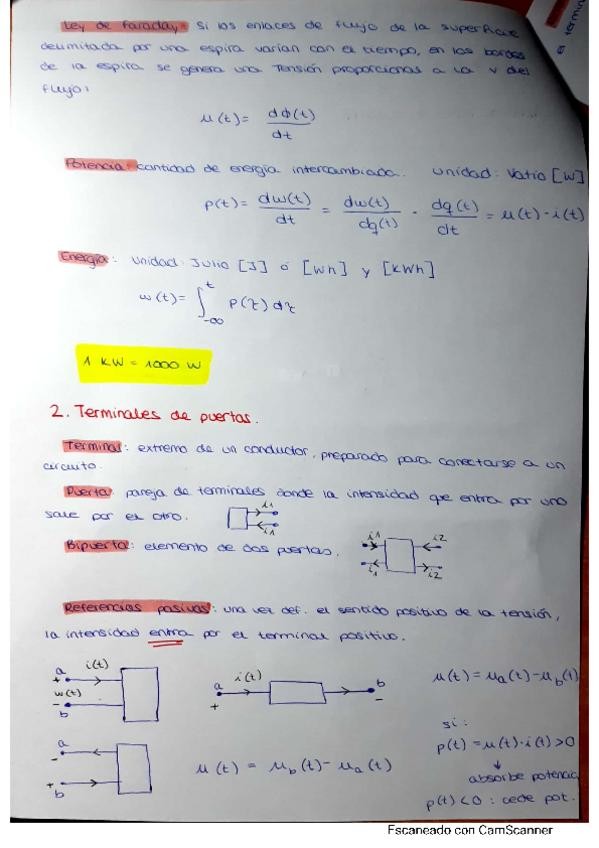 Ley de Faraday: Si los enlaces de flujo de la superficie
delimitada por una espira varían con el tiempo, en los bordes
de la espira se genera una tensión proporcional a la v del
flujo:
u(t) = dΦ(t)/dt
Potencia: cantidad de energía intercambiada. Unidad: Vatio [W]
p(t) = dw(t)/dt = dw(t)/dq(t) · dq(t)/dt = u(t)·i(t)
Energía: Unidad: Julio [J] ó [Wh] y [kWh]
w(t) = ∫_{-∞}^{t} p(τ) dτ
1 KW = 1000 W
2. Terminales de puertas.
Terminal: extremo de un conductor, preparado para conectarse a un
circuito.
Puerta: pareja de terminales donde la intensidad que entra por uno
sale por el otro. i1 i1
Bipuerta: elemento de dos puertas. i1 i2
i1 i2
Referencias pasivas: una vez def. el sentido positivo de la tensión,
la intensidad entra por el terminal positivo.
a i(t) + u(t) - b
a i(t) + b -
u(t) = ua(t) - ub(t)
si:
p(t) = u(t)·i(t) > 0
absorbe potencia
p(t) < 0 : cede pot.
a - + b
u(t) = ub(t) - ua(t)
Escaneado con CamScanner